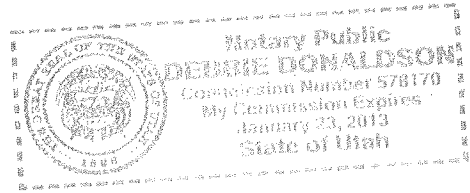 THE GREAT SEAL OF THE STATE OF UTAH
1896
Notary Public
DEBBIE DONALDSON
Commission Number 578170
My Commission Expires
January 23, 2013
State of Utah